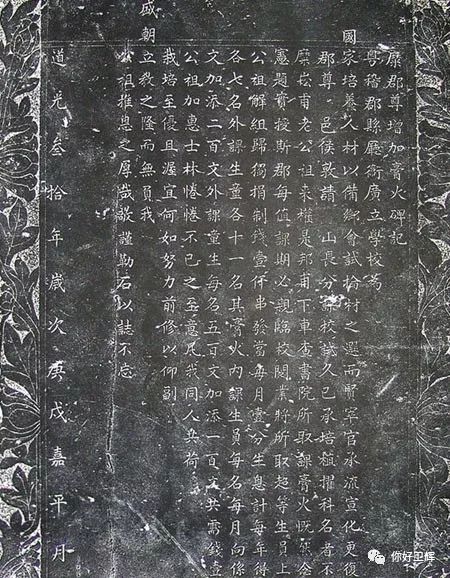 麋郡尊增加膏火碑記
粵稽郡縣廳衙廣立學校為
國家培養人材以備鄉會試掄材之選而賢宰官承流宣化更復
郡尊 邑侯敦請 山長分課校試久已承培植擢科名者不
麋崧甫老公祖來權是邦甫下車查書院所取課膏火慨然念
憲題實授斯郡每值課期必親臨校閱業將所取超等生員上
公祖解組歸獨捐制錢壹仟串發當每月壹分生息計每年得
各七名外課生童各十一名其膏火內課生員每名每月向係
文加添二百文外課童生每名五百文加添一百文共需錢壹
公祖加惠士林惓惓不已之至意凡我同人共荷
栽培至優且渥宜何如努力前修以仰副
盛朝立教之隆而無負我
公祖推恩之厚哉敬謹勒石以誌不忘
道光叁拾年歲次庚戌嘉平月
你好卫辉